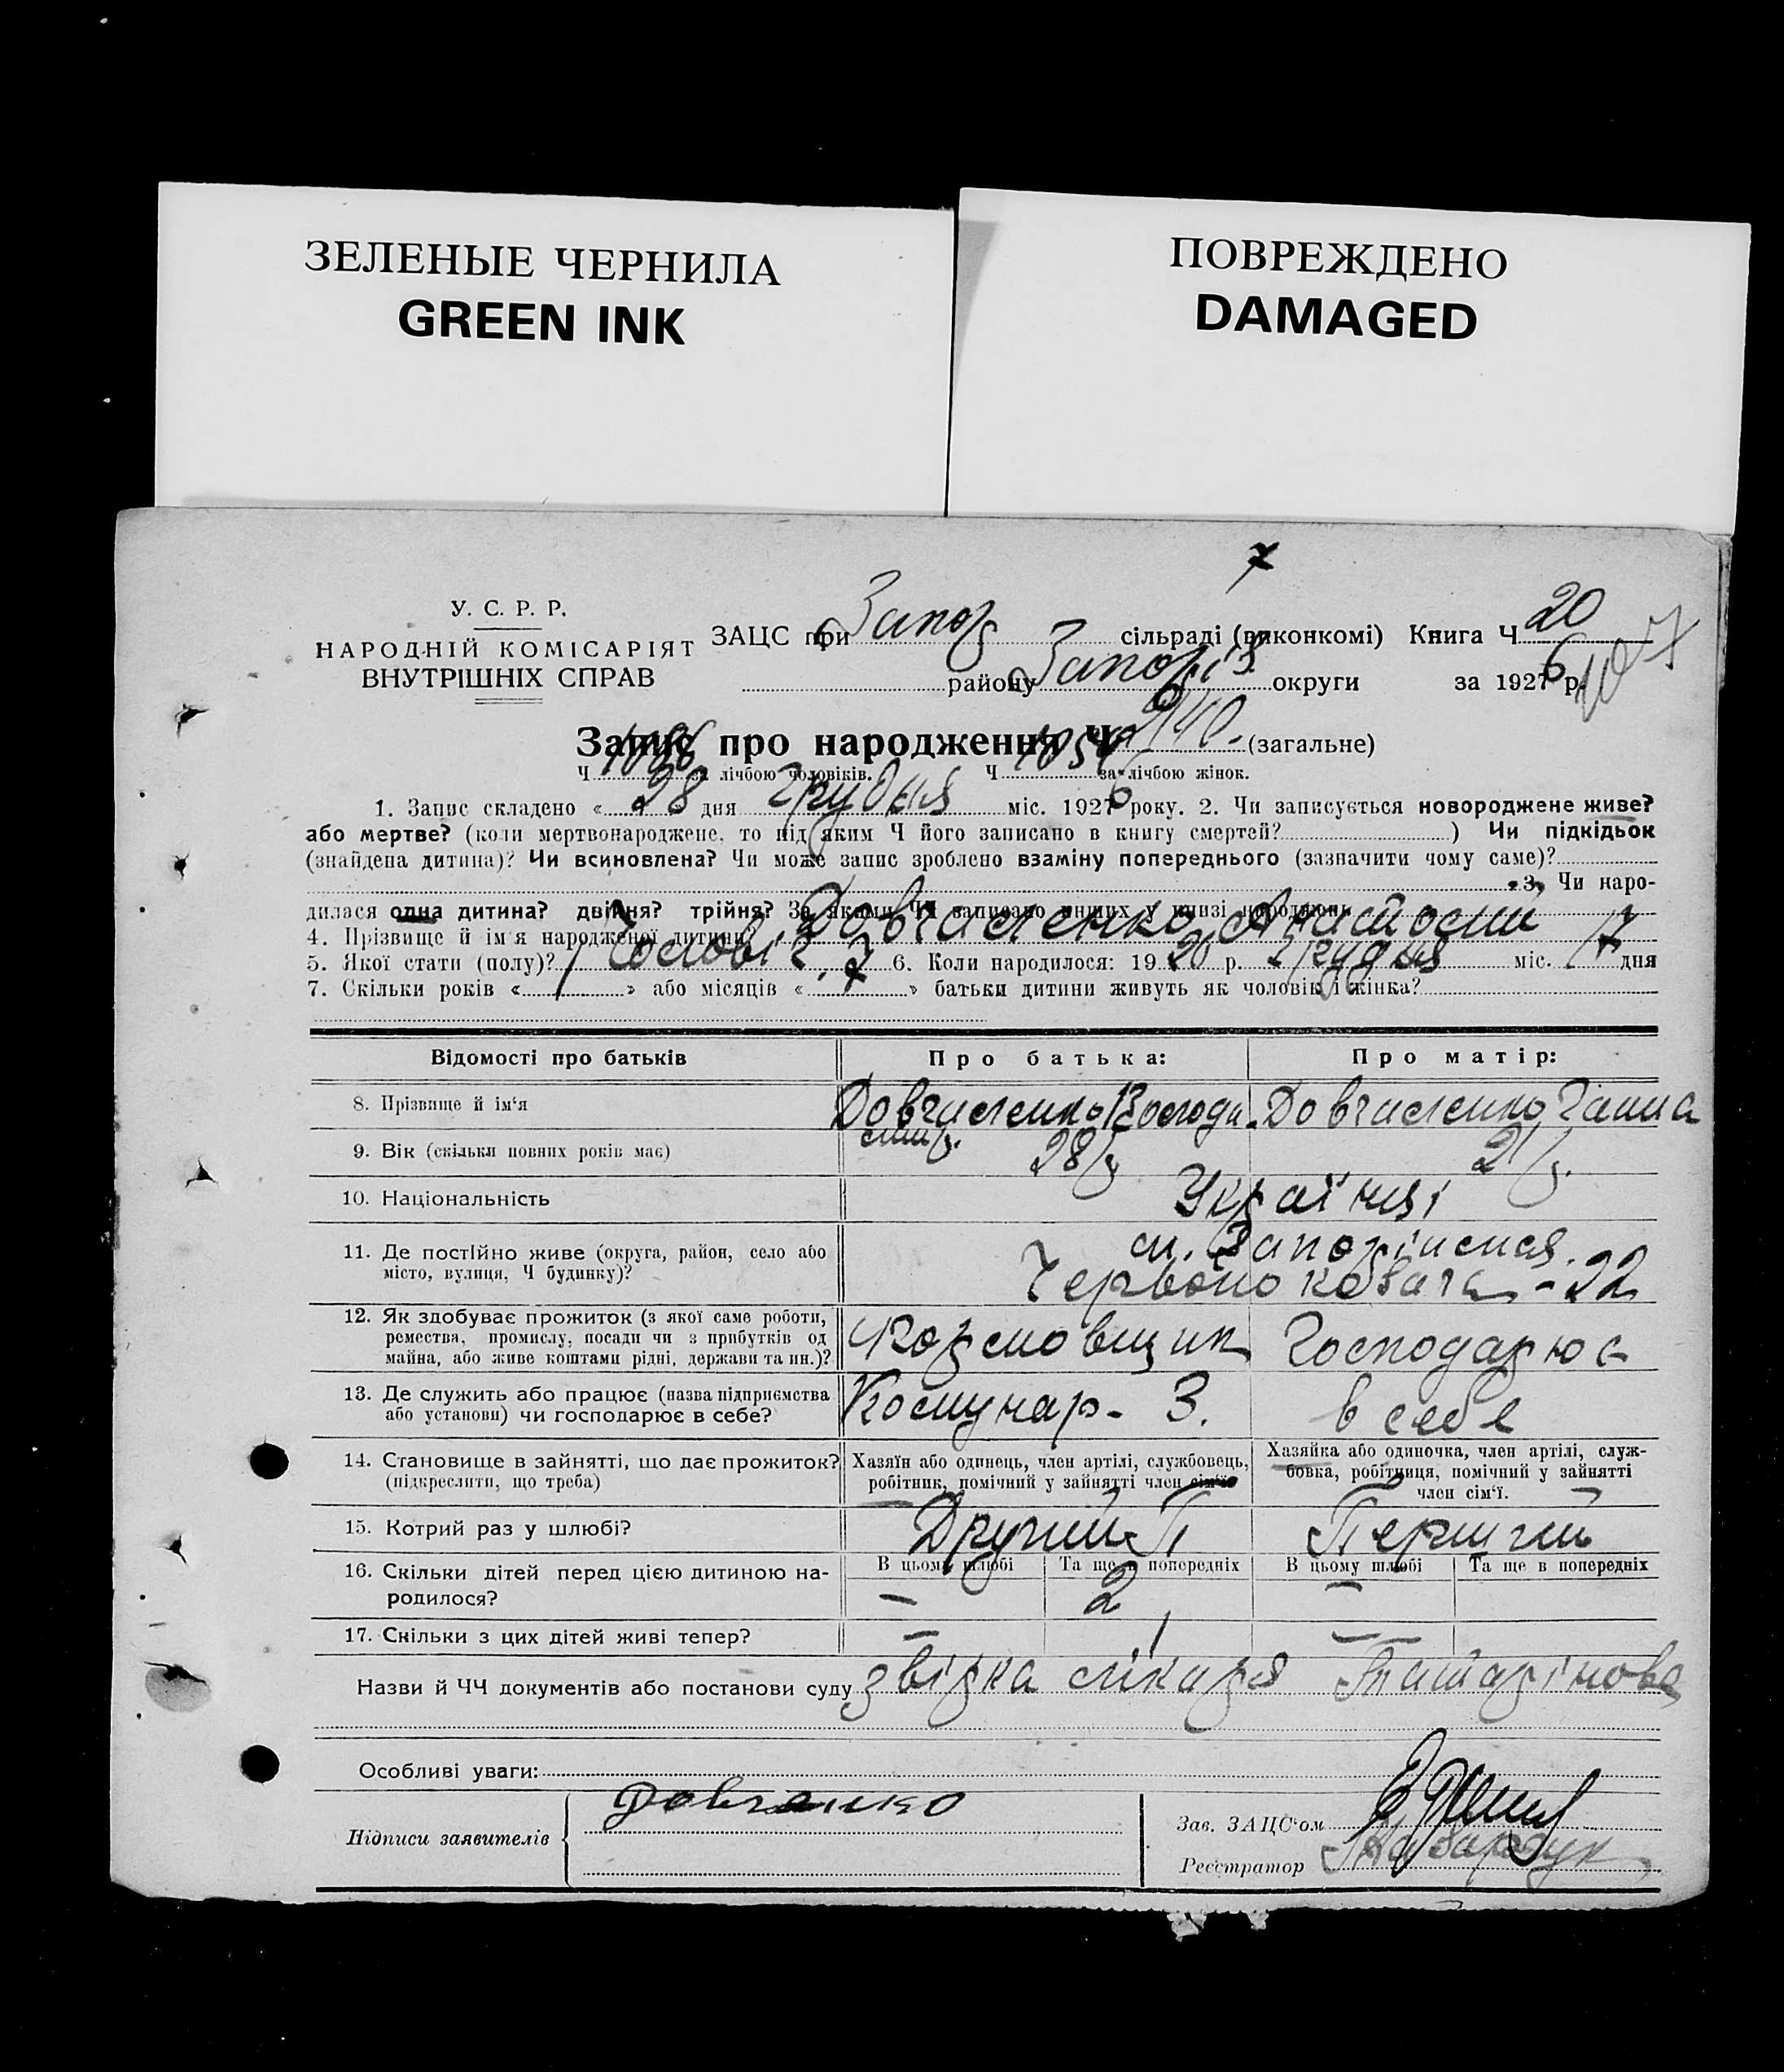 ЗЕЛЕНЫЕ ЧЕРНИЛА
GREEN INK
ПОВРЕЖДЕНО
DAMAGED
У. С. Р. Р.
НАРОДНІЙ КОМІСАРІЯТ
ВНУТРІШНІХ СПРАВ
ЗАЦС при Запор сільраді (виконкомі) Книга Ч 20
району Запоріз округи за 1926 р.
107
Запис про народження Ч 2140. (загальне)
Ч 1086 за лічбою чоловіків. Ч 1054 за лічбою жінок.
1. Запис складено « 28 » дня грудня міс. 1926 року. 2. Чи записується новороджене живе?
або мертве? (коли мертвонароджене, то під яким Ч його записано в книгу смертей? ) Чи підкідьок
(знайдена дитина)? Чи всиновлена? Чи може запис зроблено взаміну попереднього (зазначити чому саме)?
3. Чи наро-
дилася одна дитина? двійня? трійня? За якими ЧЧ записано инших у книзі народжень
4. Прізвище й ім'я народженої дитини? Анатолій
5. Якої стати (полу)? Чоловіч. 6. Коли народилося: 19 26 р. грудня міс. 17 дня
7. Скільки років « 1 » або місяців « 2 » батьки дитини живуть як чоловік і жінка?
Відомості про батьків
Про батька:
Про матір:
8. Прізвище й ім'я
Володи-
Ганна
мир.
9. Вік (скільки повних років має)
28 р
21 р.
10. Національність
Українці
11. Де постійно живе (округа, район, село або
місто, вулиця, Ч будинку)?
м. Запоріжжя.
Червоно козача - 22
12. Як здобуває прожиток (з якої саме роботи,
ремества, промислу, посади чи з прибутків од
майна, або живе коштами рідні, держави та ин.)?
Формовщик
Господарює
13. Де служить або працює (назва підприємства
або установи) чи господарює в себе?
Комунар - З.
в себе
14. Становище в зайнятті, що дає прожиток?
(підкреслити, що треба)
Хазяїн або одинець, член артілі, службовець,
робітник, помічний у зайнятті член сім'ї.
Хазяйка або одиночка, член артілі, служ-
бовка, робітниця, помічний у зайнятті
член сім'ї.
15. Котрий раз у шлюбі?
Другий
Перший
16. Скільки дітей перед цією дитиною на-
родилося?
В цьому шлюбі
–
Та ще в попередніх
2
В цьому шлюбі
–
Та ще в попередніх
17. Скільки з цих дітей живі тепер?
–
1
–
Назви й ЧЧ документів або постанови суду звірка лікаря Татарінова
Особливі уваги:
Підписи заявителів
Зав. ЗАЦС'ом
Реєстратор